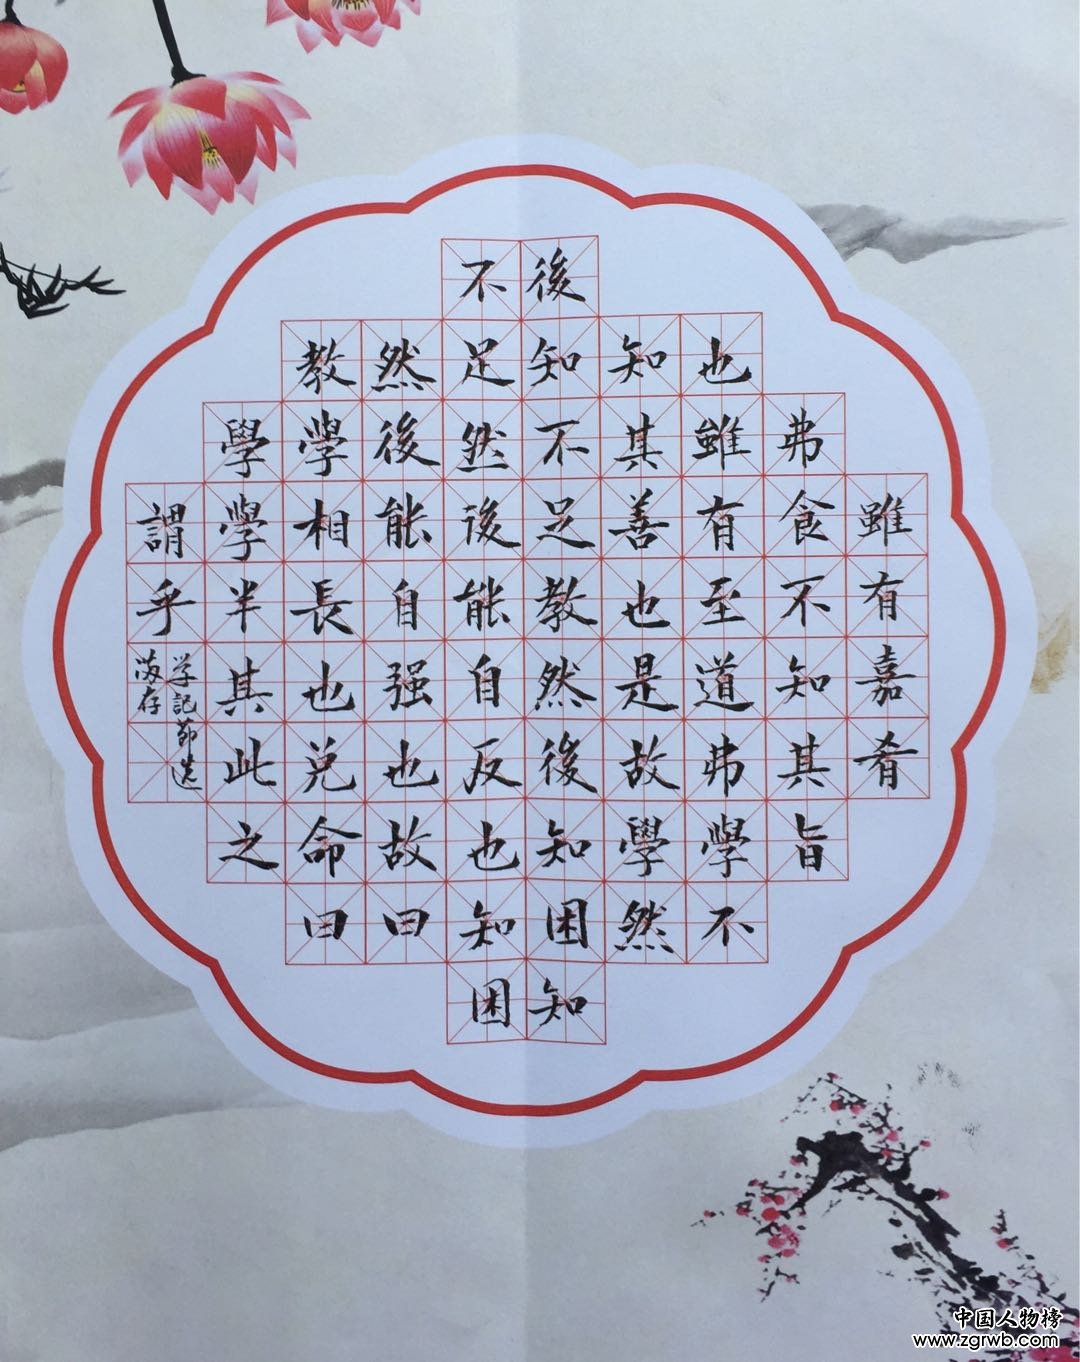 雖有嘉肴
弗食不知其旨
也雖有至道弗學不
知其善也是故學然
後知不足教然後知困知
不足然後能自反也知困
然後能自强也故曰
教學相長也兑命曰
學學半其此之
謂乎
学記節选
存
中国人物榜
www.zgrwb.com